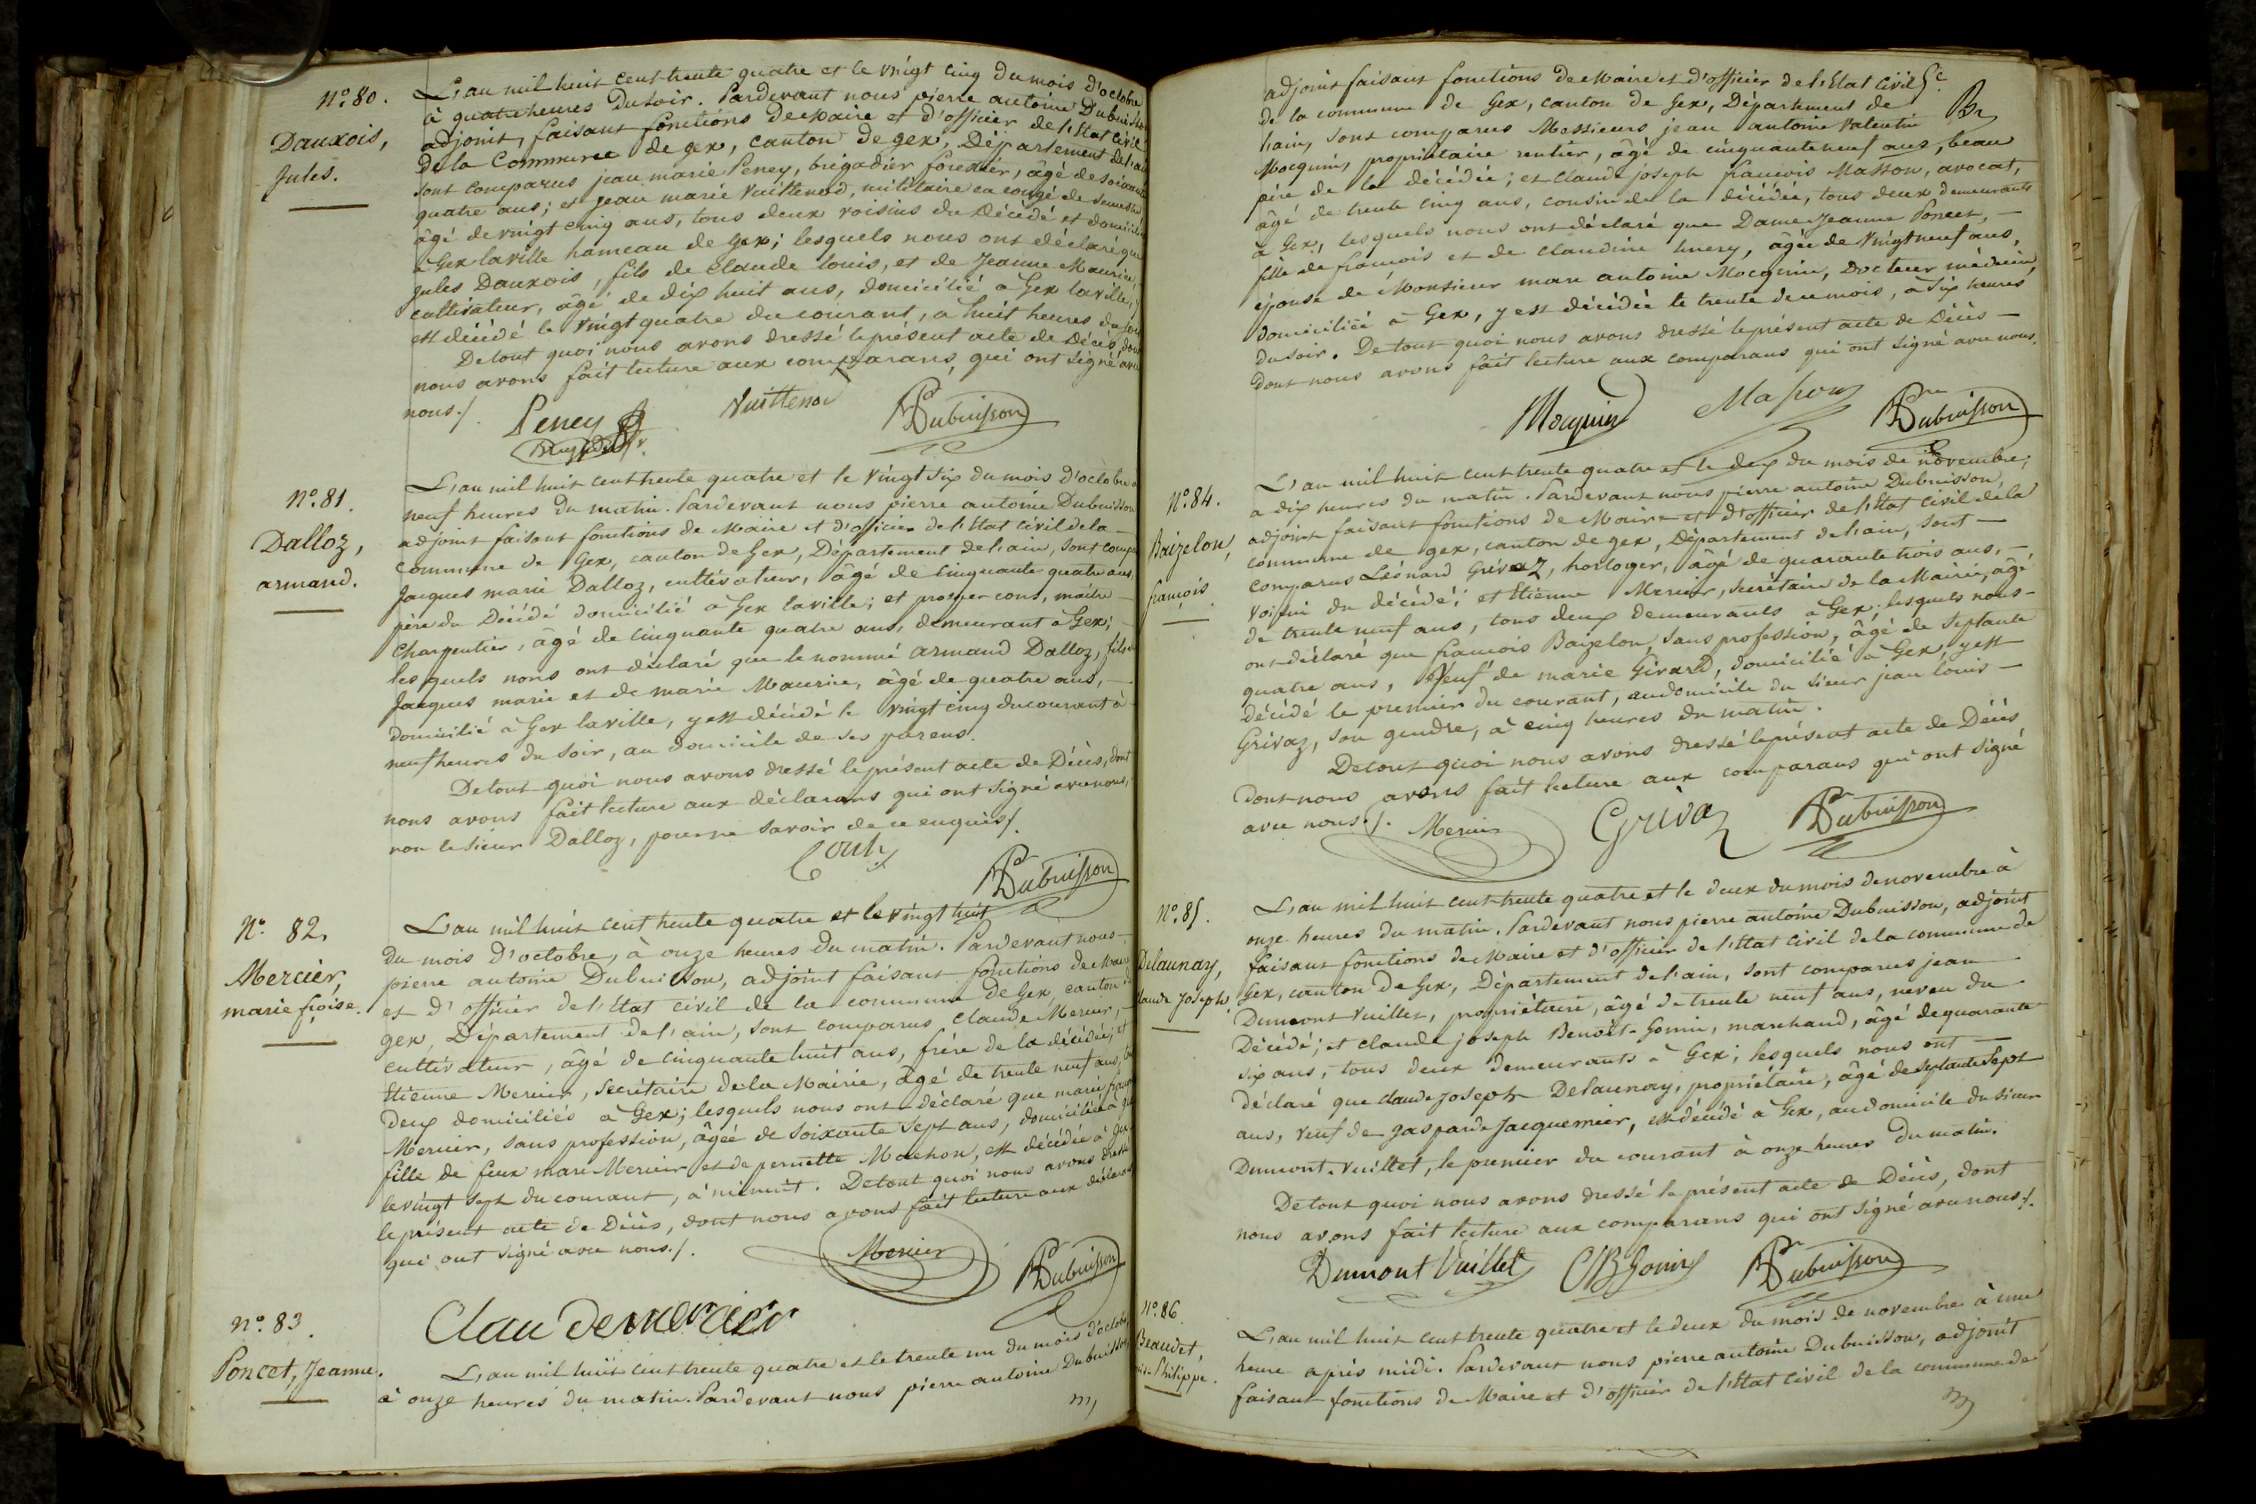 N.º 80.
Dauxois,
Jules.
L'an mil huit cent trente quatre et le vingt cinq du mois d'octobre
à quatre heures du soir. Pardevant nous pierre antoine Dubuisson
adjoint, faisant fonctions de Maire et d'officier de l'Etat civil
de la Commune de gex, canton de gex, Département de l'ain
sont comparus jean marie Peney, brigadier forestier, âgé de soixante
quatre ans; et jean marie Vuittenod, militaire en congé de semestre
âgé de vingt cinq ans, tous deux voisins du Décédé et domiciliés
à Gex laville hameau de Gex; lesquels nous ont déclaré que
Jules Dauxois, fils de Claude louis, et de Jeanne Maurice,
cultivateur, âgé de dix huit ans, domicilié à Gex laville, y
est décédé le vingt quatre du courant, à huit heures du soir
De tout quoi nous avons dressé le présent acte de Décès, dont
nous avons fait lecture aux comparans, qui ont signé avec
nous./.
Peney Vuittenod Dubuisson
N.º 81.
Dalloz,
armand.
L'an mil huit cent trente quatre et le vingt six du mois d'octobre à
neuf heures du matin. Pardevant nous pierre antoine Dubuisson
adjoint faisant fonctions de Maire et d'officier de l'Etat civil de la
Commune de Gex, canton de Gex, Département de l'ain, sont comparus
Jacques marie Dalloz, cultivateur, âgé de cinquante quatre ans
père du Décédé domicilié à Gex laville; et prosper cont, maître
Charpentier, âgé de cinquante quatre ans, demeurant à Gex;
lesquels nous ont déclaré que le nommé armand Dalloz, fils de
Jacques marie et de marie Maurice, âgé de quatre ans,
domicilié à Gex laville, y est décédé le vingt cinq du courant à
neuf heures du soir, au domicile de ses parens.
De tout quoi nous avons dressé le présent acte de Décès, dont
nous avons fait lecture aux déclarans qui ont signé avec nous,
non le sieur Dalloz, pour ne savoir de ce enquis/.
Dubuisson
N.º 82.
Mercier,
marie fçoise.
L'an mil huit cent trente quatre et le vingt huit
du mois d'octobre, à onze heures du matin. Pardevant nous
pierre antoine Dubuisson, adjoint faisant fonctions de Maire
et d'officier de l'Etat civil de la commune de Gex, canton de
gex, Département de l'ain, sont comparus Claude Mercier,
cultivateur, âgé de cinquante huit ans, frère de la décédée; et
Etienne Mercier, secrétaire de la Mairie, âgé de trente neuf ans, tous
deux domiciliés à Gex; lesquels nous ont déclaré que marie françoise
Mercier, sans profession, âgée de soixante sept ans, domiciliée à gex
fille de feux marc Mercier et de pernette Mochon, est décédée à Gex
le vingt sept du courant, à minuit. De tout quoi nous avons dressé
le présent acte de Décès, dont nous avons fait lecture aux déclarans
qui ont signé avec nous./.
Mercier Dubuisson
Claude mercier
N.º 83.
Poncet, Jeanne.
L'an mil huit cent trente quatre et le trente un du mois d'octobre
à onze heures du matin. Pardevant nous pierre antoine Dubuisson
adjoint faisant fonctions de Maire et d'officier de l'Etat civil
de la commune de Gex, canton de Gex, Département de
l'ain, sont comparus Messieurs jean antoine Valentin
Mocquin, propriétaire rentier, âgé de cinquante neuf ans, beau
père de la décédée; et Claude joseph françois Masson, avocat,
âgé de trente cinq ans, cousin de la décédée, tous deux demeurants
à Gex, lesquels nous ont déclaré que Dame Jeanne Poncet,
fille de françois et de claudine huery, âgée de vingt neuf ans,
épouse de Monsieur marc antoine Mocquin, Docteur médecin,
domiciliée à Gex, y est décédée le trente de ce mois, à six heures
du soir. De tout quoi nous avons dressé le présent acte de Décès
dont nous avons fait lecture aux comparans qui ont signé avec nous.
Mocquin Masson Dubuisson
N.º 84.
Baizelon,
françois
L'an mil huit cent trente quatre et le deux du mois de novembre,
à dix heures du matin. Pardevant nous pierre antoine Dubuisson,
adjoint faisant fonctions de Maire et d'officier de l'Etat civil de la
commune de gex, canton de gex, Département de l'ain, sont
comparus Léonard Grivaz, horloger, âgé de quarante trois ans,
voisin du décédé; et Etienne Mercier, secrétaire de la Mairie, âgé
de trente neuf ans, tous deux demeurants à Gex; lesquels nous
ont déclaré que françois Baizelon, sans profession, âgé de septante
quatre ans, Veuf de marie Girard, domicilié à Gex, y est
décédé le premier du courant, au domicile du sieur jean louis
Grivaz, son gendre, à cinq heures du matin.
De tout quoi nous avons dressé le présent acte de Décès
dont nous avons fait lecture aux comparans qui ont signé
avec nous./.
Mercier Grivaz Dubuisson
N.º 85.
Delaunay,
claude Joseph.
L'an mil huit cent trente quatre et le deux du mois de novembre à
onze heures du matin. Pardevant nous pierre antoine Dubuisson, adjoint
faisant fonctions de Maire et d'officier de l'Etat civil de la commune de
Gex, canton de Gex, Département de l'ain, sont comparus jean
Dumont Vuillet, propriétaire, âgé de trente neuf ans, neveu du
Décédé; et claude joseph Benoît-Gonin, marchand, âgé de quarante
six ans, tous deux demeurants à Gex; lesquels nous ont
déclaré que claude Joseph Delaunay, propriétaire, âgé de septante sept
ans, veuf de gasparde Jacquemier, est décédé à Gex, au domicile du sieur
Dumont-Vuillet, le premier du courant à onze heures du matin.
De tout quoi nous avons dressé le présent acte de Décès, dont
nous avons fait lecture aux comparans qui ont signé avec nous./.
Dumont Vuillet CJB Gonin Dubuisson
N.º 86.
Beaudet
Philippe.
L'an mil huit cent trente quatre et le deux du mois de novembre à une
heure après midi. Pardevant nous pierre antoine Dubuisson, adjoint
faisant fonctions de Maire et d'officier de l'Etat civil de la commune de